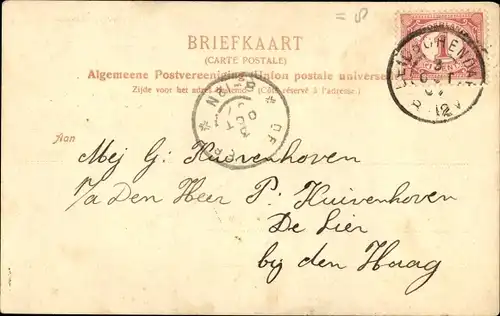 BRIEFKAART
(CARTE POSTALE)
Algemeene Postvereeniging (Union postale universelle)
Zijde voor het adres bestemd. (Côté réservé à l'adresse.)
Aan
Mej G: Kuivenhoven
p/a Den Heer P. Kuivenhoven
De Lier
bij den Haag
1